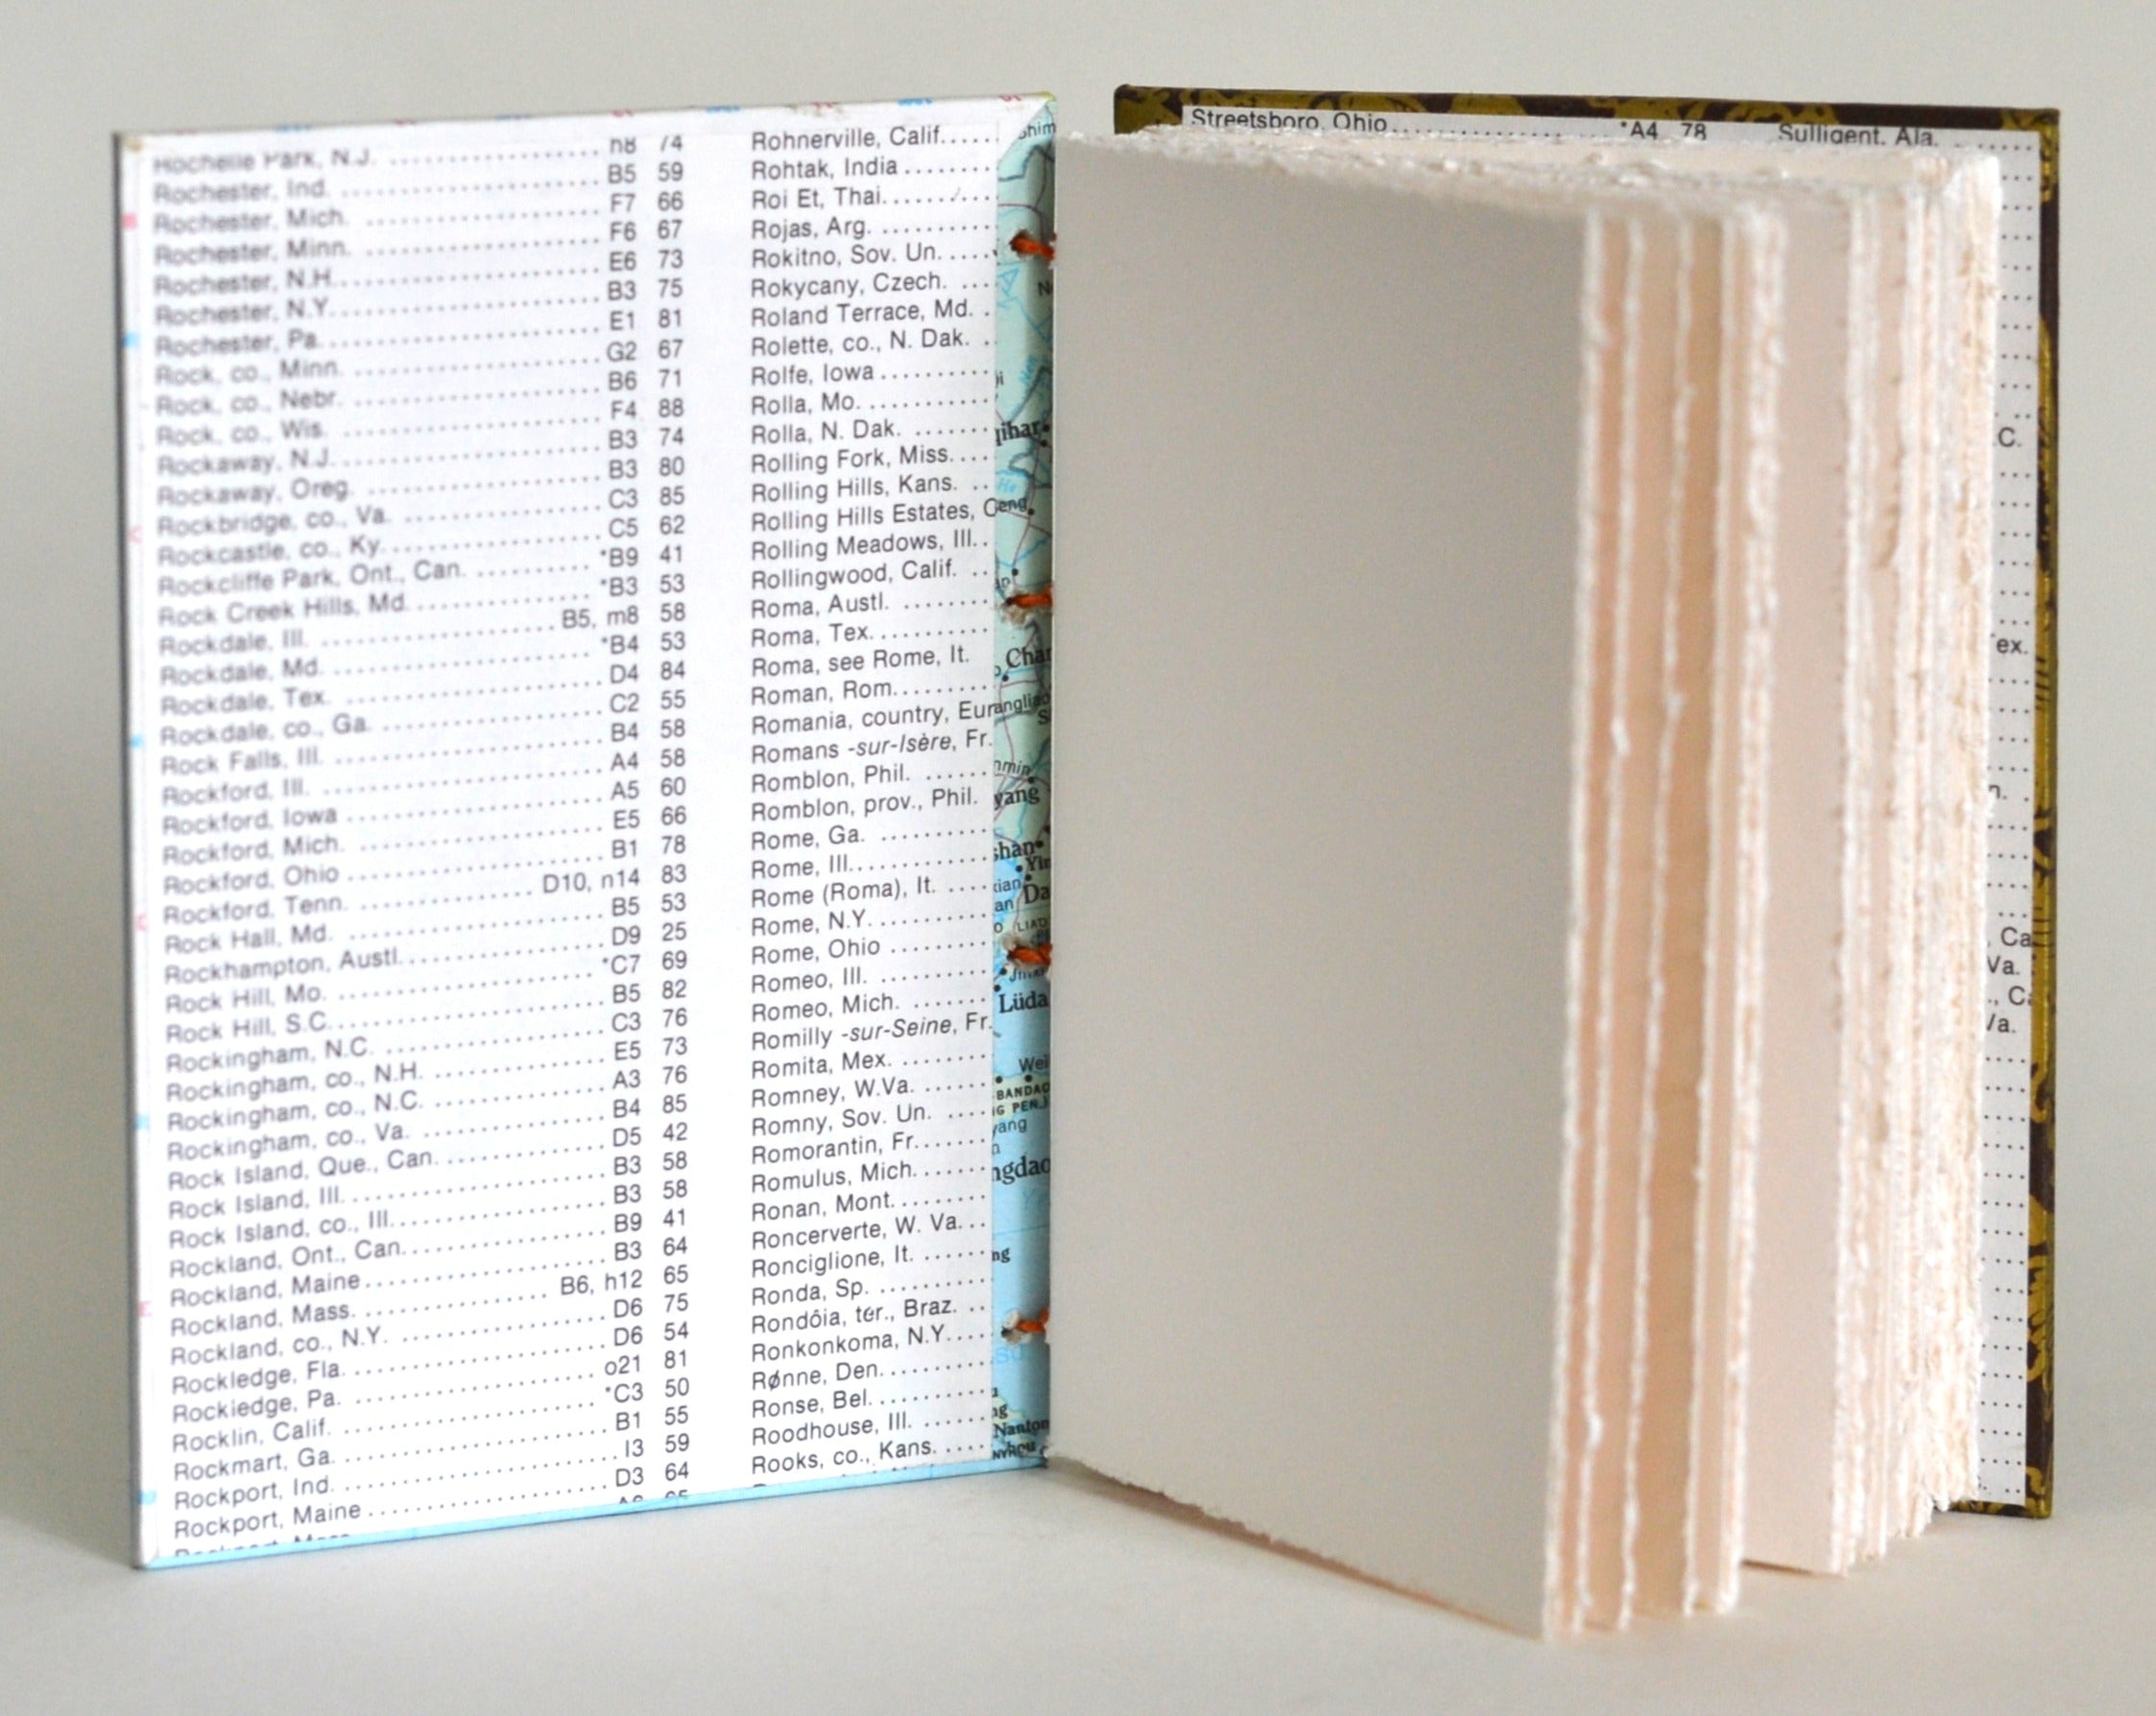 Rochelle Park, N.J. .................... n8 74
Rochester, Ind. .................... B5 59
Rochester, Mich. .................... F7 66
Rochester, Minn. .................... F6 67
Rochester, N.H. .................... E6 73
Rochester, N.Y. .................... B3 75
Rochester, Pa. .................... E1 81
Rock, co., Minn. .................... G2 67
Rock, co., Nebr. .................... B6 71
Rock, co., Wis. .................... F4 88
Rockaway, N.J. .................... B3 74
Rockaway, Oreg. .................... B3 80
Rockbridge, co., Va. .................... C3 85
Rockcastle, co., Ky. .................... C5 62
Rockcliffe Park, Ont., Can. ........... *B9 41
Rock Creek Hills, Md. .................... *B3 53
Rockdale, Ill. .................... B5, m8 58
Rockdale, Md. .................... *B4 53
Rockdale, Tex. .................... D4 84
Rockdale, co., Ga. .................... C2 55
Rock Falls, Ill. .................... B4 58
Rockford, Ill. .................... A4 58
Rockford, Iowa .................... A5 60
Rockford, Mich. .................... E5 66
Rockford, Ohio .................... B1 78
Rockford, Tenn. .................... D10, n14 83
Rock Hall, Md. .................... B5 53
Rockhampton, Austl. .................... D9 25
Rock Hill, Mo. .................... *C7 69
Rock Hill, S.C. .................... B5 82
Rockingham, N.C. .................... C3 76
Rockingham, co., N.H. .................... E5 73
Rockingham, co., N.C. .................... A3 76
Rockingham, co., Va. .................... B4 85
Rock Island, Que., Can. .................... D5 42
Rock Island, Ill. .................... B3 58
Rock Island, co., Ill. .................... B3 58
Rockland, Ont., Can. .................... B9 41
Rockland, Maine .................... B3 64
Rockland, Mass. .................... B6, h12 65
Rockland, co., N.Y. .................... D6 75
Rockledge, Fla. .................... D6 54
Rockledge, Pa. .................... o21 81
Rocklin, Calif. .................... *C3 50
Rockmart, Ga. .................... B1 55
Rockport, Ind. .................... I3 59
Rockport, Maine .................... D3 64
Rohnerville, Calif.....
Rohtak, India .........
Roi Et, Thai. .........
Rojas, Arg. ...........
Rokitno, Sov. Un. .....
Rokycany, Czech. ....
Roland Terrace, Md. .
Rolette, co., N. Dak. ..
Rolfe, Iowa ..........
Rolla, Mo. ............
Rolla, N. Dak. .......
Rolling Fork, Miss....
Rolling Hills, Kans. ..
Rolling Hills Estates, C
Rolling Meadows, Ill..
Rollingwood, Calif. ..
Roma, Austl. .........
Roma, Tex...........
Roma, see Rome, It.
Roman, Rom.........
Romania, country, Eur
Romans -sur-Isère, Fr.
Romblon, Phil. ......
Romblon, prov., Phil.
Rome, Ga. ..........
Rome, Ill............
Rome (Roma), It. ....
Rome, N.Y. .........
Rome, Ohio .........
Romeo, Ill. ..........
Romeo, Mich. .......
Romilly -sur-Seine, Fr.
Romita, Mex. ........
Romney, W.Va. ......
Romny, Sov. Un. ....
Romorantin, Fr.......
Romulus, Mich.......
Ronan, Mont.........
Roncerverte, W. Va...
Ronciglione, It. ......
Ronda, Sp. ..........
Rondôia, ter., Braz. ..
Ronkonkoma, N.Y....
Rønne, Den..........
Ronse, Bel. ..........
Roodhouse, Ill. ......
Rooks, co., Kans. ....
shim
qihar
eng
Char
angliao
nmin
yang
shan
Yin
xian
an
Da
LIAD
Lüda
Wei
BANDAO
G PEN.
yang
ngdao
ng
Su
ng
Nanton
Streetsboro, Ohio .................... *A4 78
Sulligent, Ala. ......
C.
ex.
n. .
, Ca
Va.
., Ca
Va.